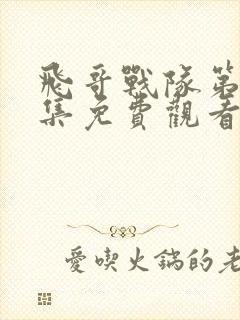 飛哥戰隊第
集免費觀看
愛喫火鍋的老